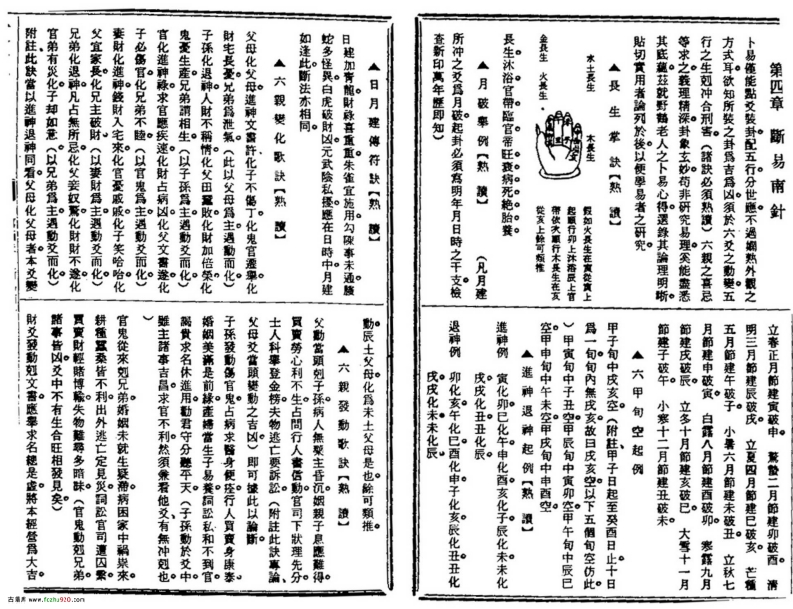 第四章 斷易南針
卜易僅能點爻裝卦配五行分世應不過嫻熟外觀之
方式耳欲知所裝之卦爲吉爲凶須於六爻之動變五
行之生剋冲合刑害(諸訣必須熟讀)六親之喜忌
等求之義理精深卦象玄妙苟非研究易理奚能盡悉
其底蘊茲就野鶴老人之卜易心得選錄其論理明晰
貼切實用者論列於後以便學易者之研究。
▲長生掌訣【熟讀】
假如火長生在寅從寅上
起順行卯上沐浴辰上官
帶依次順行木長生在亥
從亥上餘可類推
木長生
水土長生
火長生
金長生
長生沐浴官帶臨官帝旺衰病死絶胎養。
▲月破擧例【熟讀】(凡月建
所冲之爻爲月破起卦必須寫明年月日時之干支檢
查新印萬年曆即知)
立春正月節建寅破申。驚蟄二月節建卯破酉。清
明三月節建辰破戌。立夏四月節建巳破亥。芒種
五月節建午破子。小暑六月節建未破丑。立秋七
月節建申破寅。白露八月節建酉破卯。寒露九月
節建戌破辰。立冬十月節建亥破巳。大雪十一月
節建子破午。小寒十二月節建丑破未。
▲六甲旬空起例
甲子旬中戌亥空(附註甲子日起至癸酉日止十日
爲一旬旬內無戌亥故曰戌亥空以下五個旬空仿此
)甲寅旬中子丑空甲辰旬中寅卯空甲午旬中辰巳
空甲申旬中午未空甲戌旬中申酉空
▲進神退神起例【熟讀】
進神例 寅化卯巳化午申化酉亥化子辰化未未化
戌戌化丑丑化辰
退神例 卯化寅午化巳酉化申子化亥辰化丑丑化
戌戌化未未化辰
▲日月建傳符訣【熟讀】
日建加青龍財祿喜重重朱雀宜施用勾陳事未通螣
蛇多怪異白虎破財凶元武陰私擾應在日時中月建
如逢此斷法亦相同。
▲六親變化歌訣【熟讀】
父母化父母進神文書許化子不傷丁化鬼官遷擧化
財宅長憂兄弟爲洩氣(此以父母爲主遇動而化)
子孫化退神人財不稱情化父田蠶敗化財加倍榮化
鬼憂生產兄弟謂相生(以子孫爲主遇動爻而化)
官化進神祿求官應疾速化財占病凶化父文書遂化
子必傷官化兄弟不睦(以官鬼爲主遇動爻而化)
妻財化進神錢財入宅來化官憂戚戚化子笑哈哈化
父宜家長化兄主破財(以妻財爲主遇動爻而化)
兄弟化退神凡占無所忌化父妾奴驚化財財不遂化
官弟有災化子却如意(以兄弟爲主遇動爻而化)
附註此訣當以進神退神同看父母化父母者本爻變
動辰土父母化爲未土父母是也餘可類推。
▲六親發動歌訣【熟讀】
父動當頭剋子孫病人無藥主昏沉姻親子息應難得
買賣勞心利不生占問行人書信動官司下狀理先分
士人科擧登金榜失物逃亡要訴訟(附註此訣專論
父母爻當頭變動之吉凶)即可據此以論斷。
子孫發動傷官鬼占病求醫身便痊行人買賣身康泰
婚姻美滿是前緣產婦當生子易養詞訟私和不到官
謁貴求名休進用勸君守分聽乎天(子孫動於爻中
雖主諸事吉昌求官不利然須兼看他爻有無冲剋也
)
官鬼從來剋兄弟婚姻未就生疑滯病困家中禍祟來
耕種蠶桑皆不利出外逃亡定見災詞訟官司遭囚繫
買賣財經賭博輸失物難尋多暗昧(官鬼動剋兄弟
諸事皆凶爻中不有生合旺相發見矣)
財爻發動剋文書應擧求名總是虛將本經營爲大吉
古易库 www.fczhu920.com